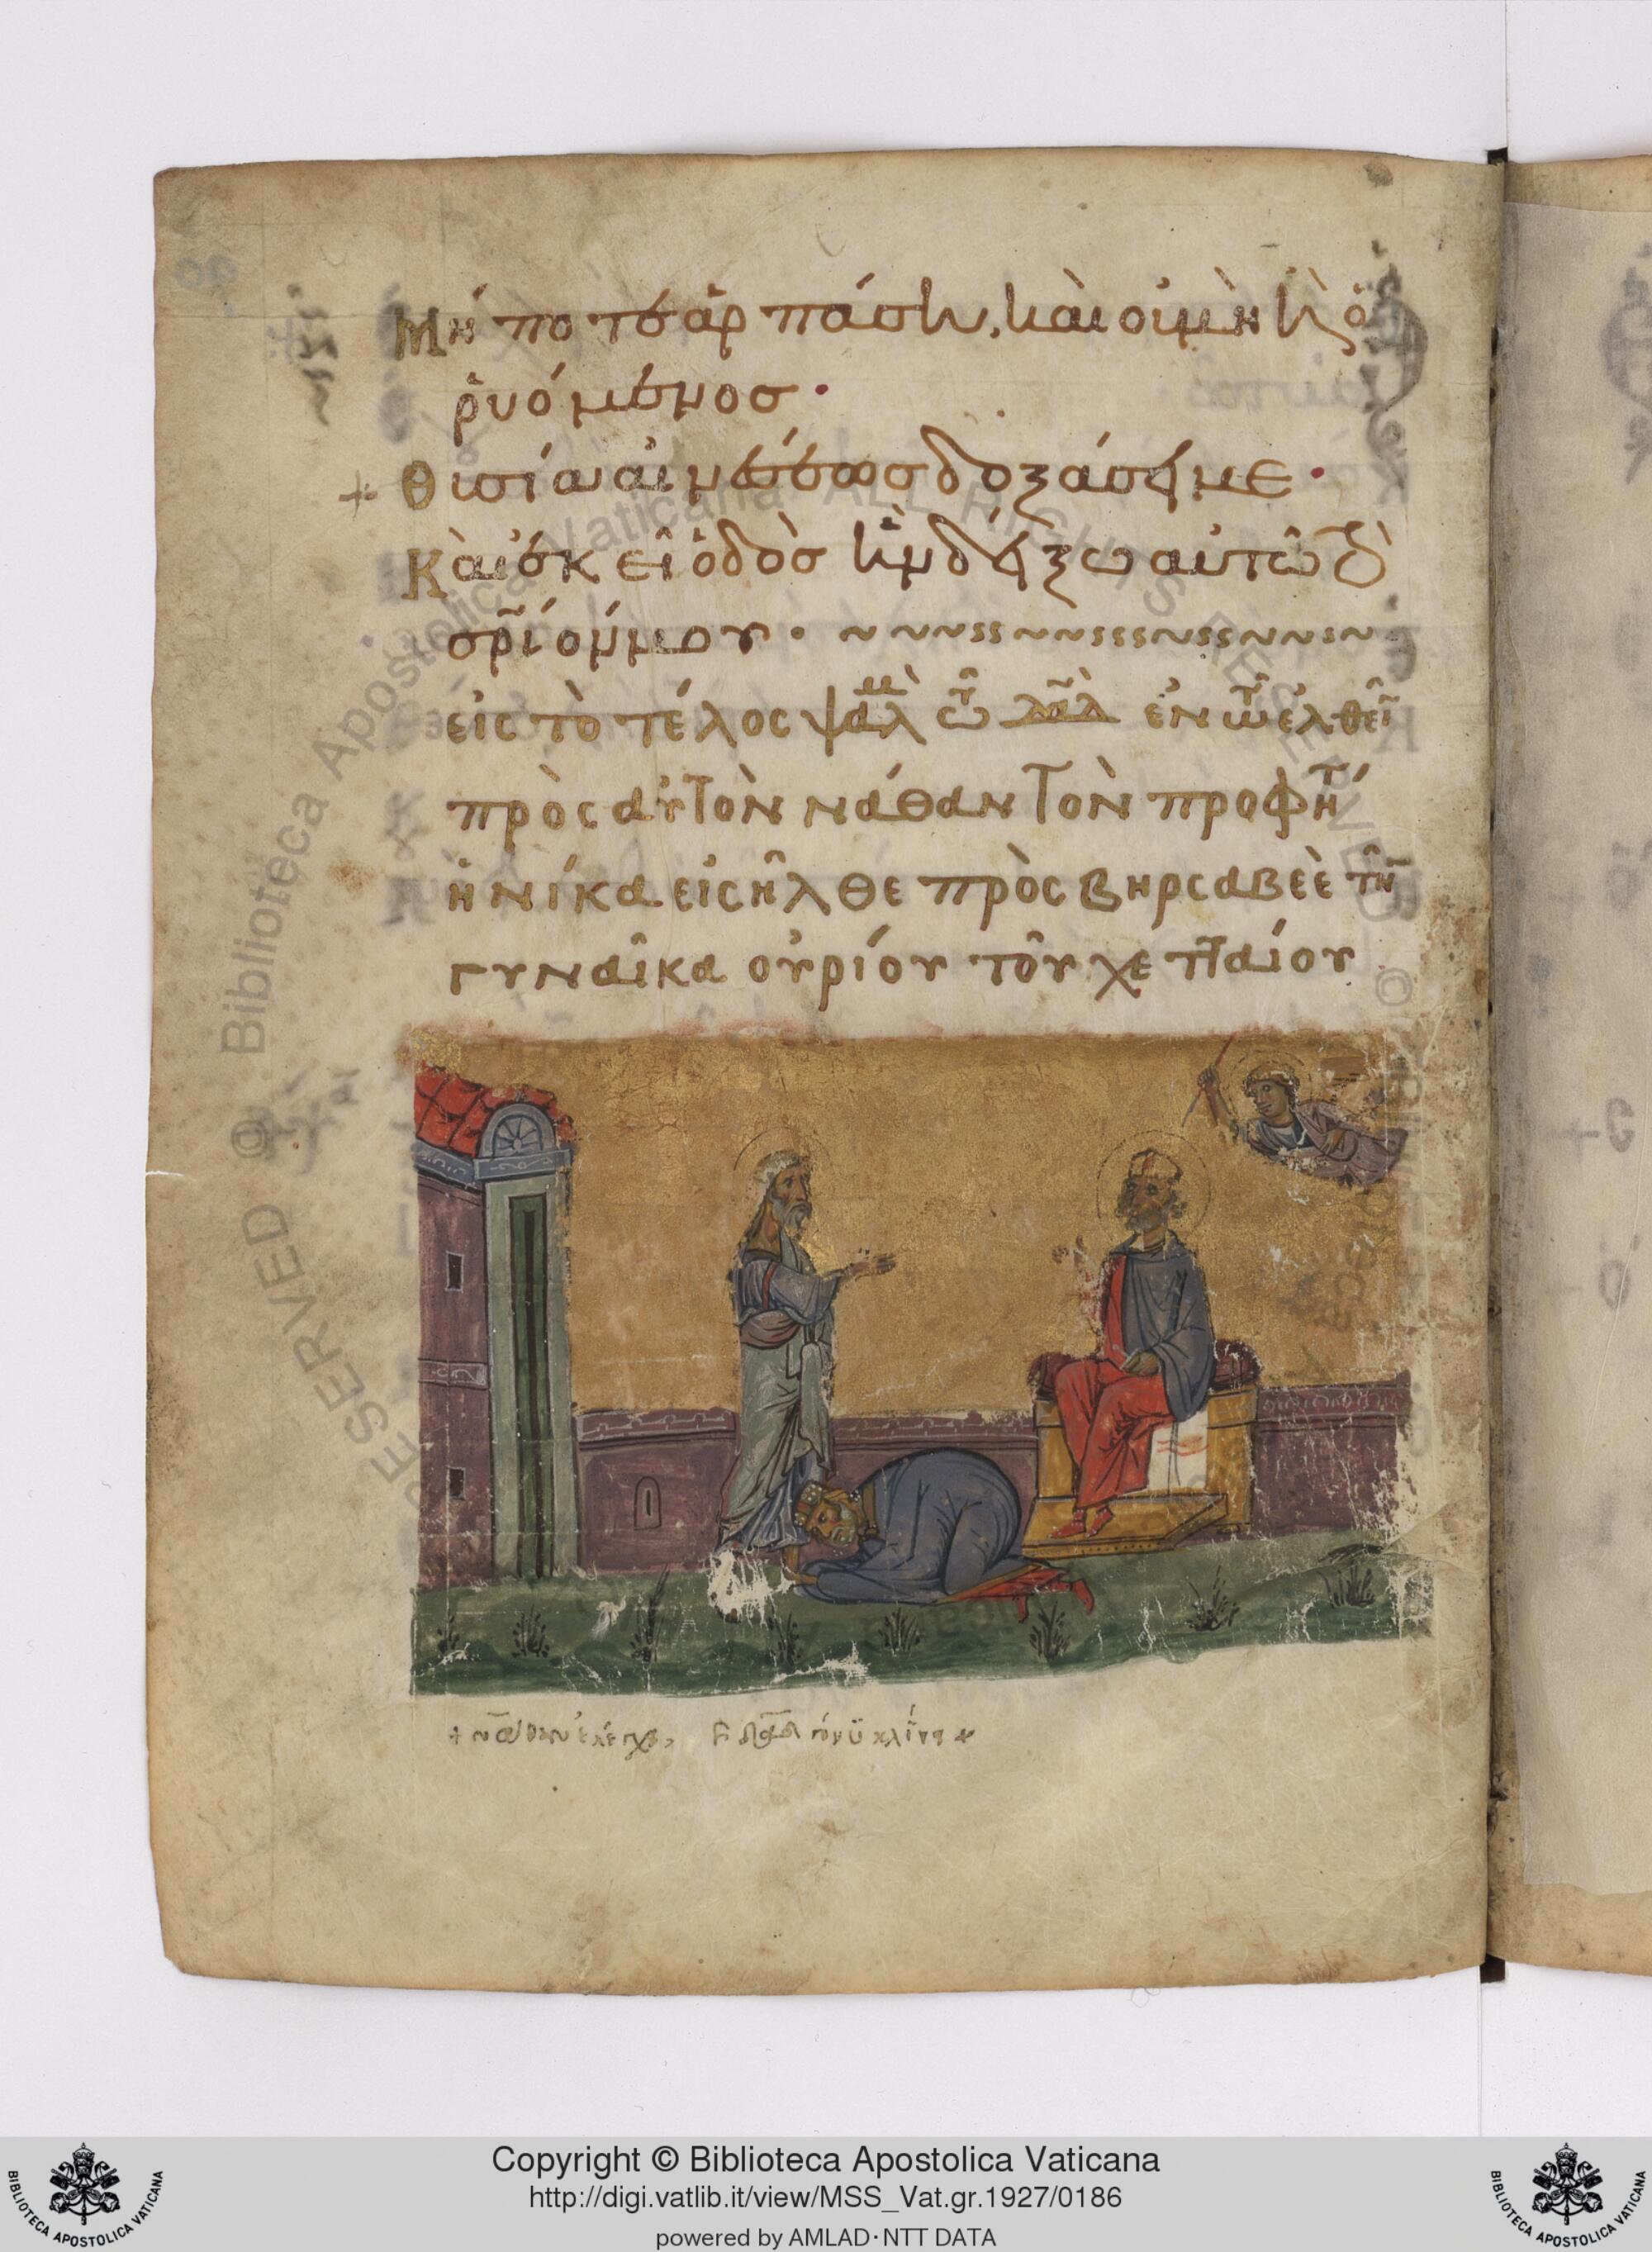 Μήποτε ἁρπάσῃ, καὶ οὐ μὴ ᾖ ὁ
ῥυόμενος·
Θυσία αἰνέσεως δοξάσει με·
Καὶ ἐκεῖ ὁδὸς ᾗ δείξω αὐτῷ τὸ
σρίόν μου·
εἰς τὸ τέλος ψαλμ τῶ δαδ ἐν τῶ ἐλθεῖ
πρὸς αὐτὸν νάθαν τὸν προφήτ
ἡνίκα εἰσῆλθε πρὸς βηρσαβεὲ τὴ
γυναῖκα οὐρίου τοῦ χετταίου
Copyright © Biblioteca Apostolica Vaticana
http://digi.vatlib.it/view/MSS_Vat.gr.1927/0186
powered by AMLAD·NTT DATA
BIBLIOTECA APOSTOLICA VATICANA
BIBLIOTECA APOSTOLICA VATICANA